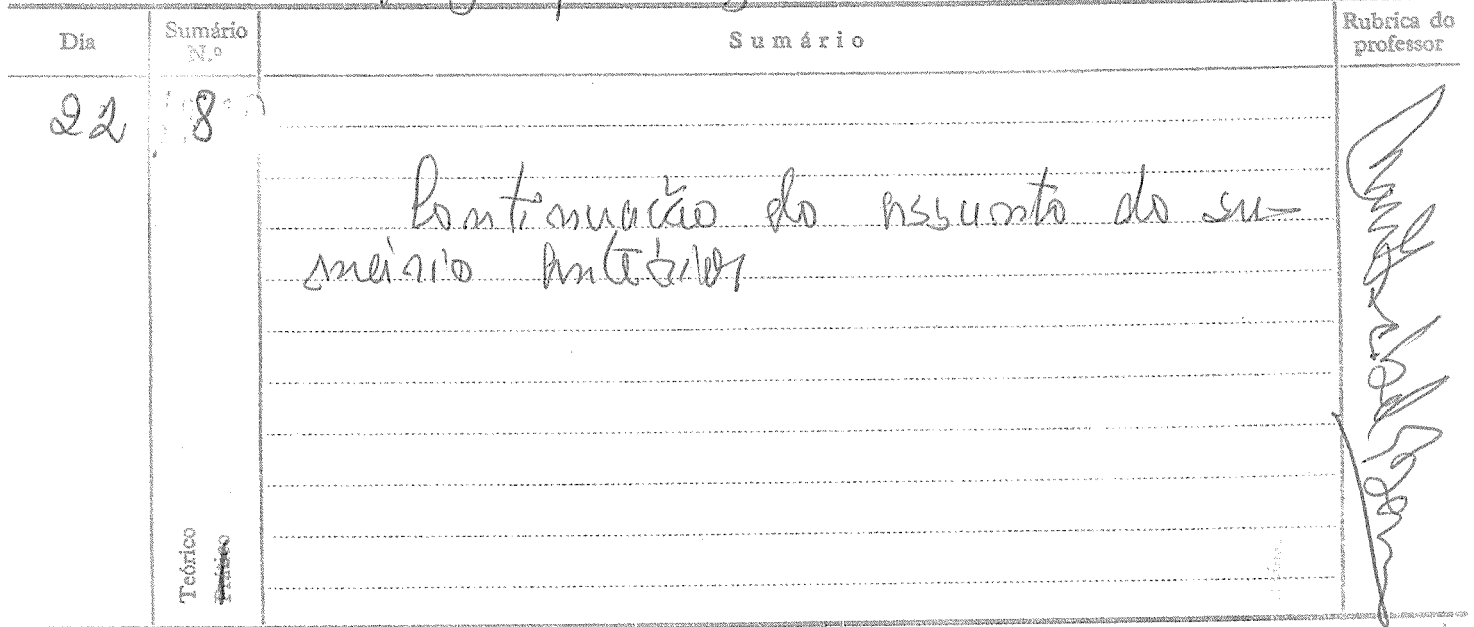 Dia
Sumário N.º
Sumário
Rubrica do professor
22
8
Continuação do assunto do su-
mário anterior
Teórico
Prático